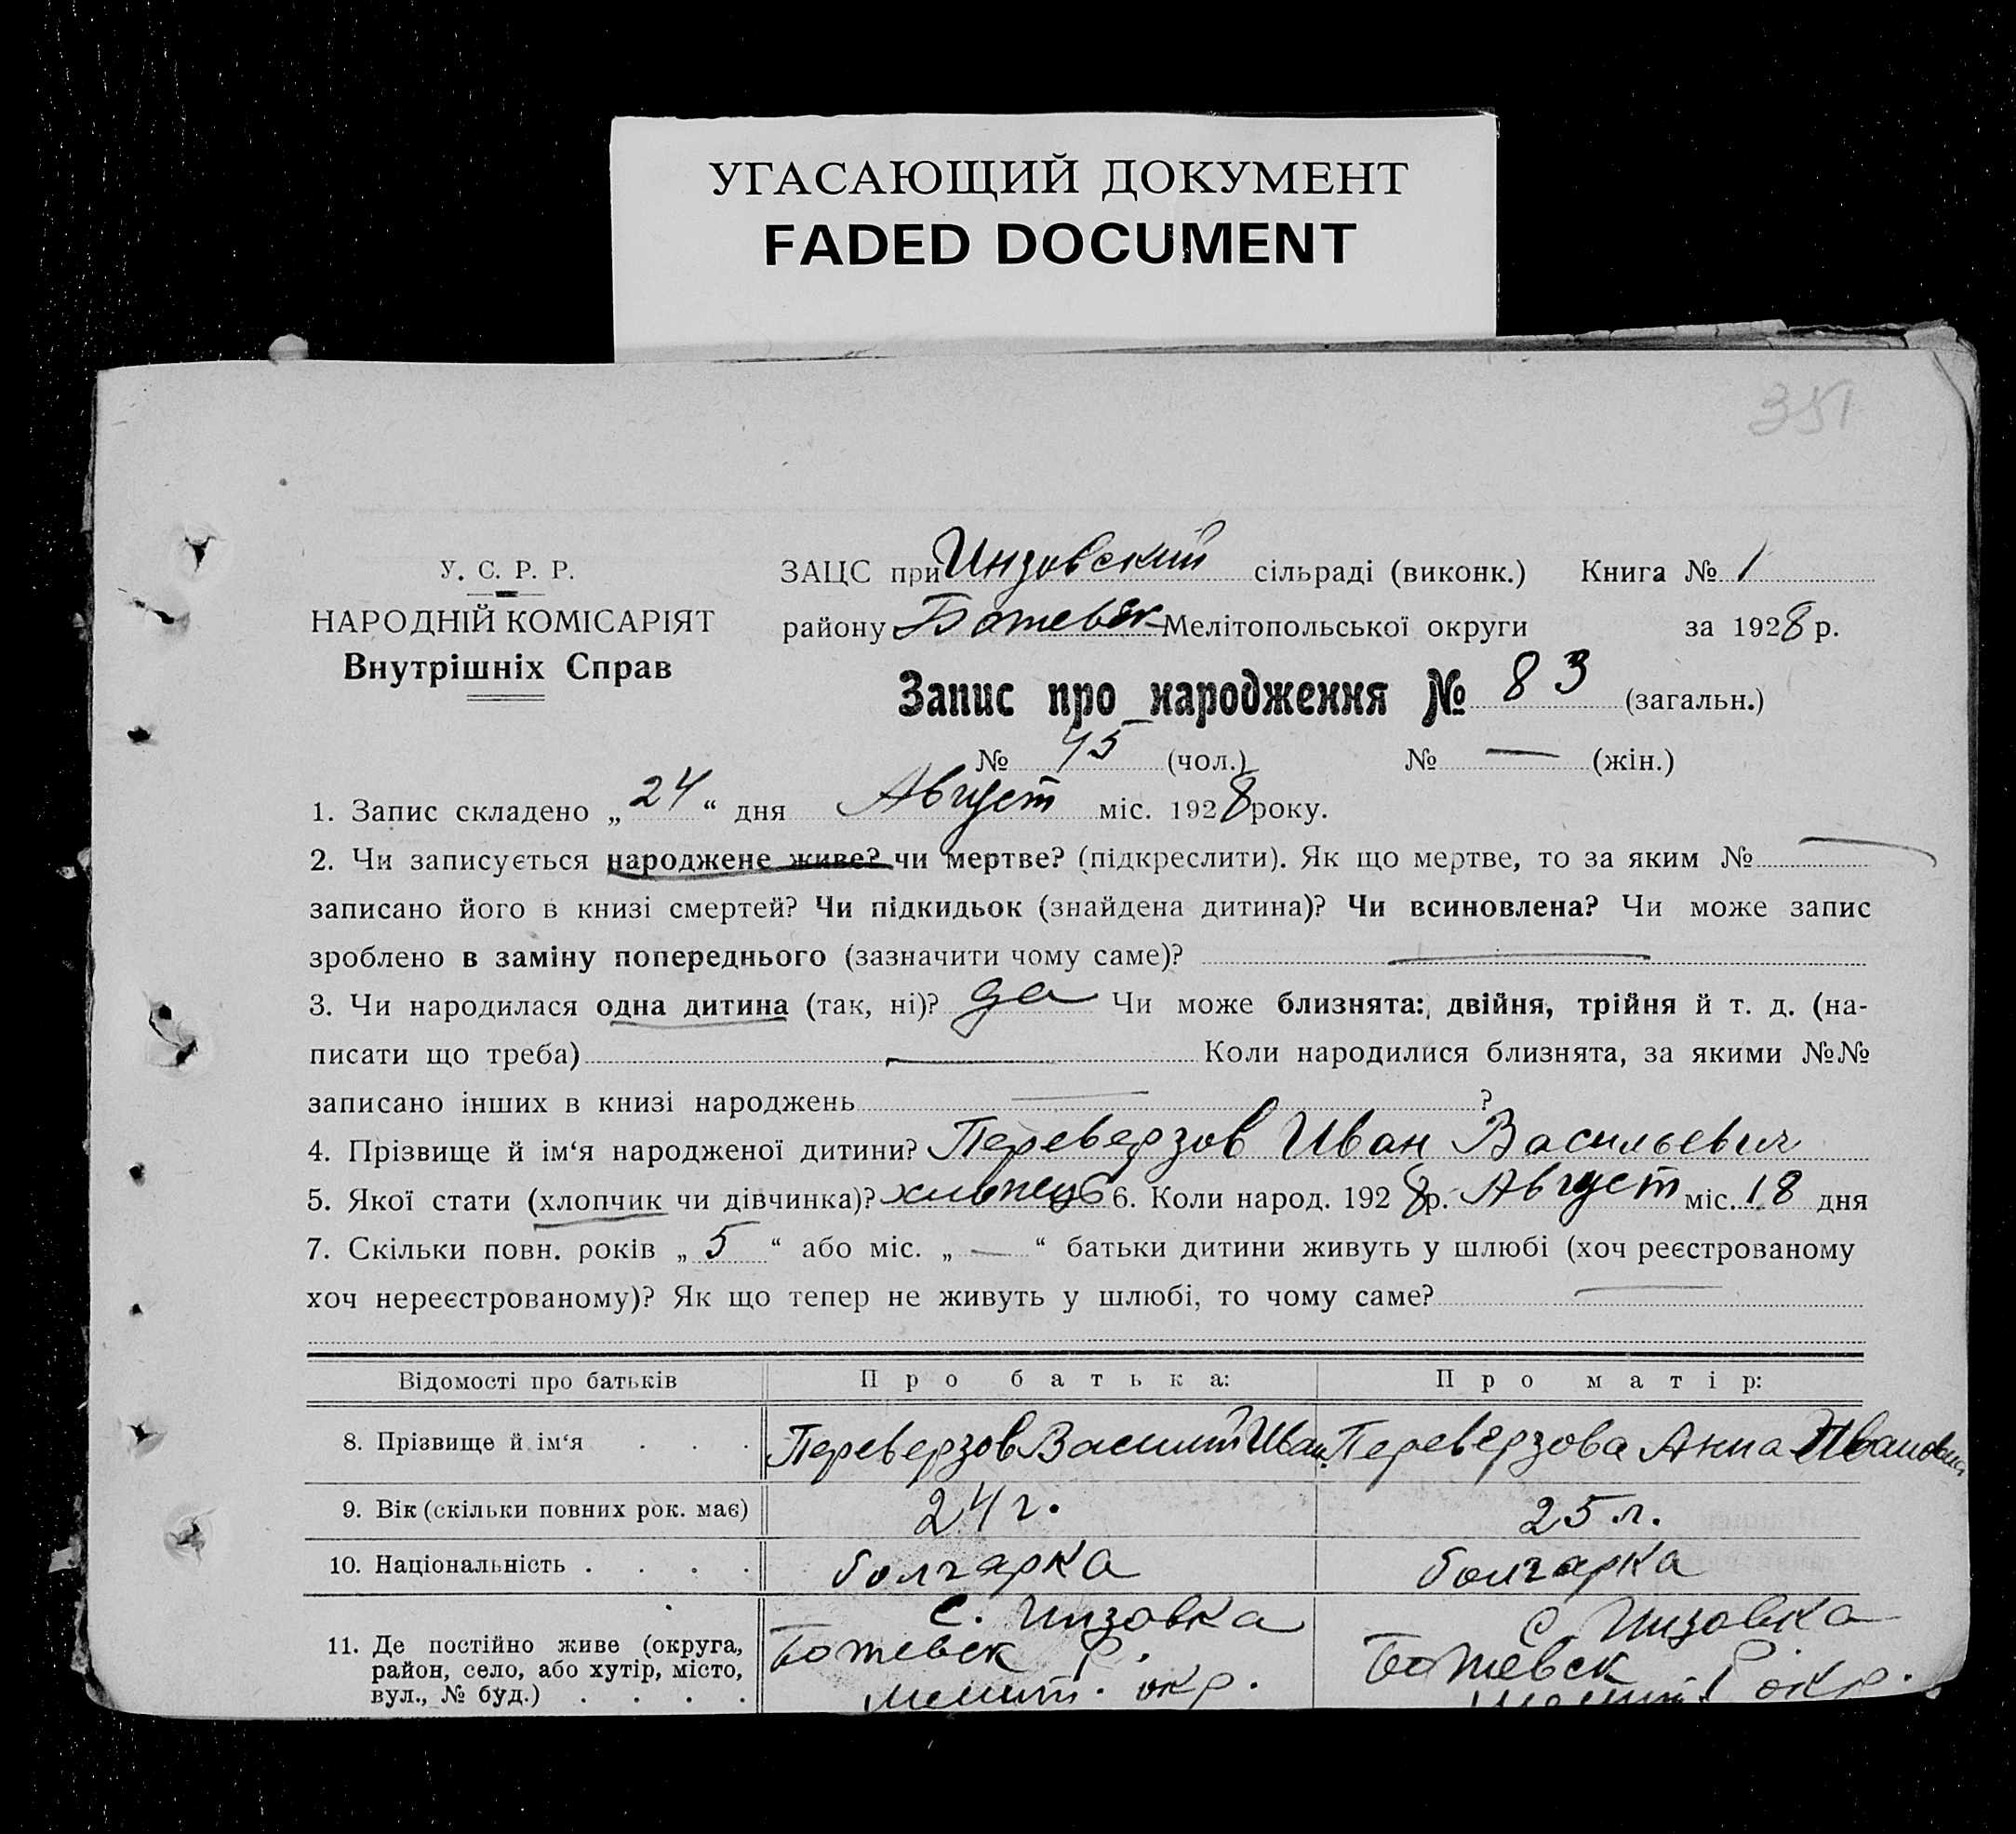 УГАСАЮЩИЙ ДОКУМЕНТ
FADED DOCUMENT
351
У. С. Р. Р.
НАРОДНІЙ КОМІСАРІЯТ
Внутрішніх Справ
ЗАЦС при Инзовский сільраді (виконк.) Книга № 1
району Ботевск Мелітопольської округи за 1928 р.
Запис про народження № 83 (загальн.)
№ 45 (чол.) № — (жін.)
1. Запис складено „ 24 “ дня Август міс. 1928 року.
2. Чи записується народжене живе? чи мертве? (підкреслити). Як що мертве, то за яким № —
записано його в книзі смертей? Чи підкидьок (знайдена дитина)? Чи всиновлена? Чи може запис
зроблено в заміну попереднього (зазначити чому саме)? —
3. Чи народилася одна дитина (так, ні)? да Чи може близнята: двійня, трійня й т. д. (на-
писати що треба) — Коли народилися близнята, за якими №№
записано інших в книзі народжень — ?
4. Прізвище й ім‘я народженої дитини? Переверзов Иван Васильевич
5. Якої стати (хлопчик чи дівчинка)? хлопець 6. Коли народ. 1928 р. Август міс. 18 дня
7. Скільки повн. років „ 5 “ або міс. „ — “ батьки дитини живуть у шлюбі (хоч реєстрованому
хоч нереєстрованому)? Як що тепер не живуть у шлюбі, то чому саме? —
Відомості про батьків Про батька: Про матір:
8. Прізвище й ім‘я . . . Переверзов Василий Иван. Переверзова Анна Ивановна
9. Вік (скільки повних рок. має) 24 г. 25 л.
10. Національність . . . . болгарка болгарка
11. Де постійно живе (округа, район, село, або хутір, місто, вул., № буд.) . . . .
с. Инзовка
Ботевск Р.
Мелит. окр.
с. Инзовка
Ботевск Р.
Мелит. окр.